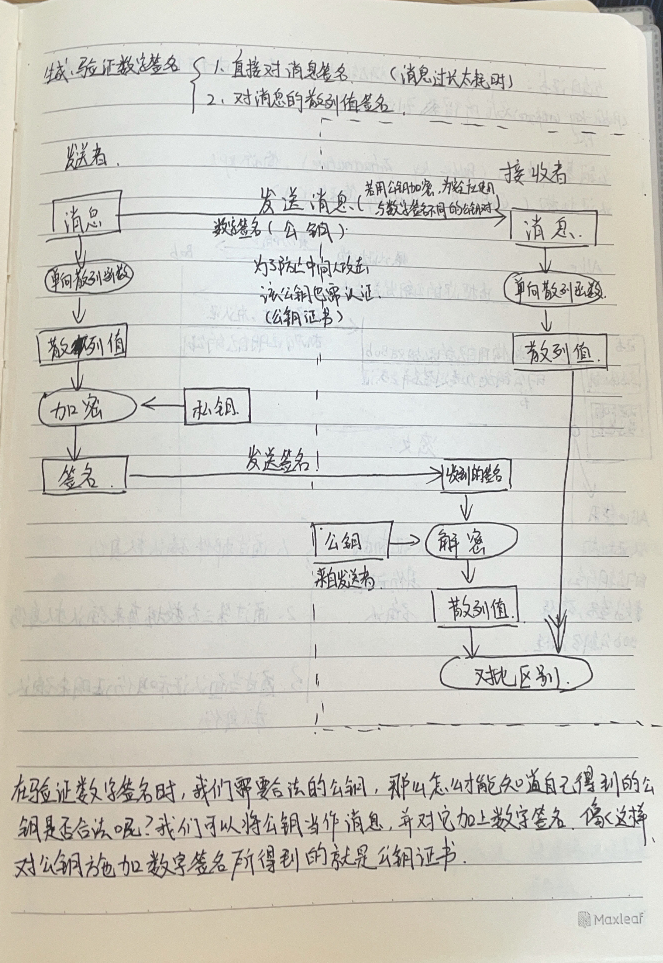 生成、验证数字签名 { 1. 直接对消息签名. (消息过长太耗时)
2. 对消息的散列值签名.
发送者.
接收者
消息
发送消息.(若用公钥加密,
与数字签名不同的公钥对
数字签名(公钥).
消息.
单向散列函数
为了防止中间人攻击
该公钥也需认证.
(公钥证书)
单向散列函数.
散列值
散列值.
加密
私钥.
签名.
发送签名
收到的签名
公钥
来自发送者
解密
散列值.
对比区别.
在验证数字签名时,我们需要合法的公钥,那么怎么才能知道自己得到的公
钥是否合法呢?我们可以将公钥当作消息,并对它加上数字签名.像这样
对公钥施加数字签名所得到的就是公钥证书.
Maxleaf